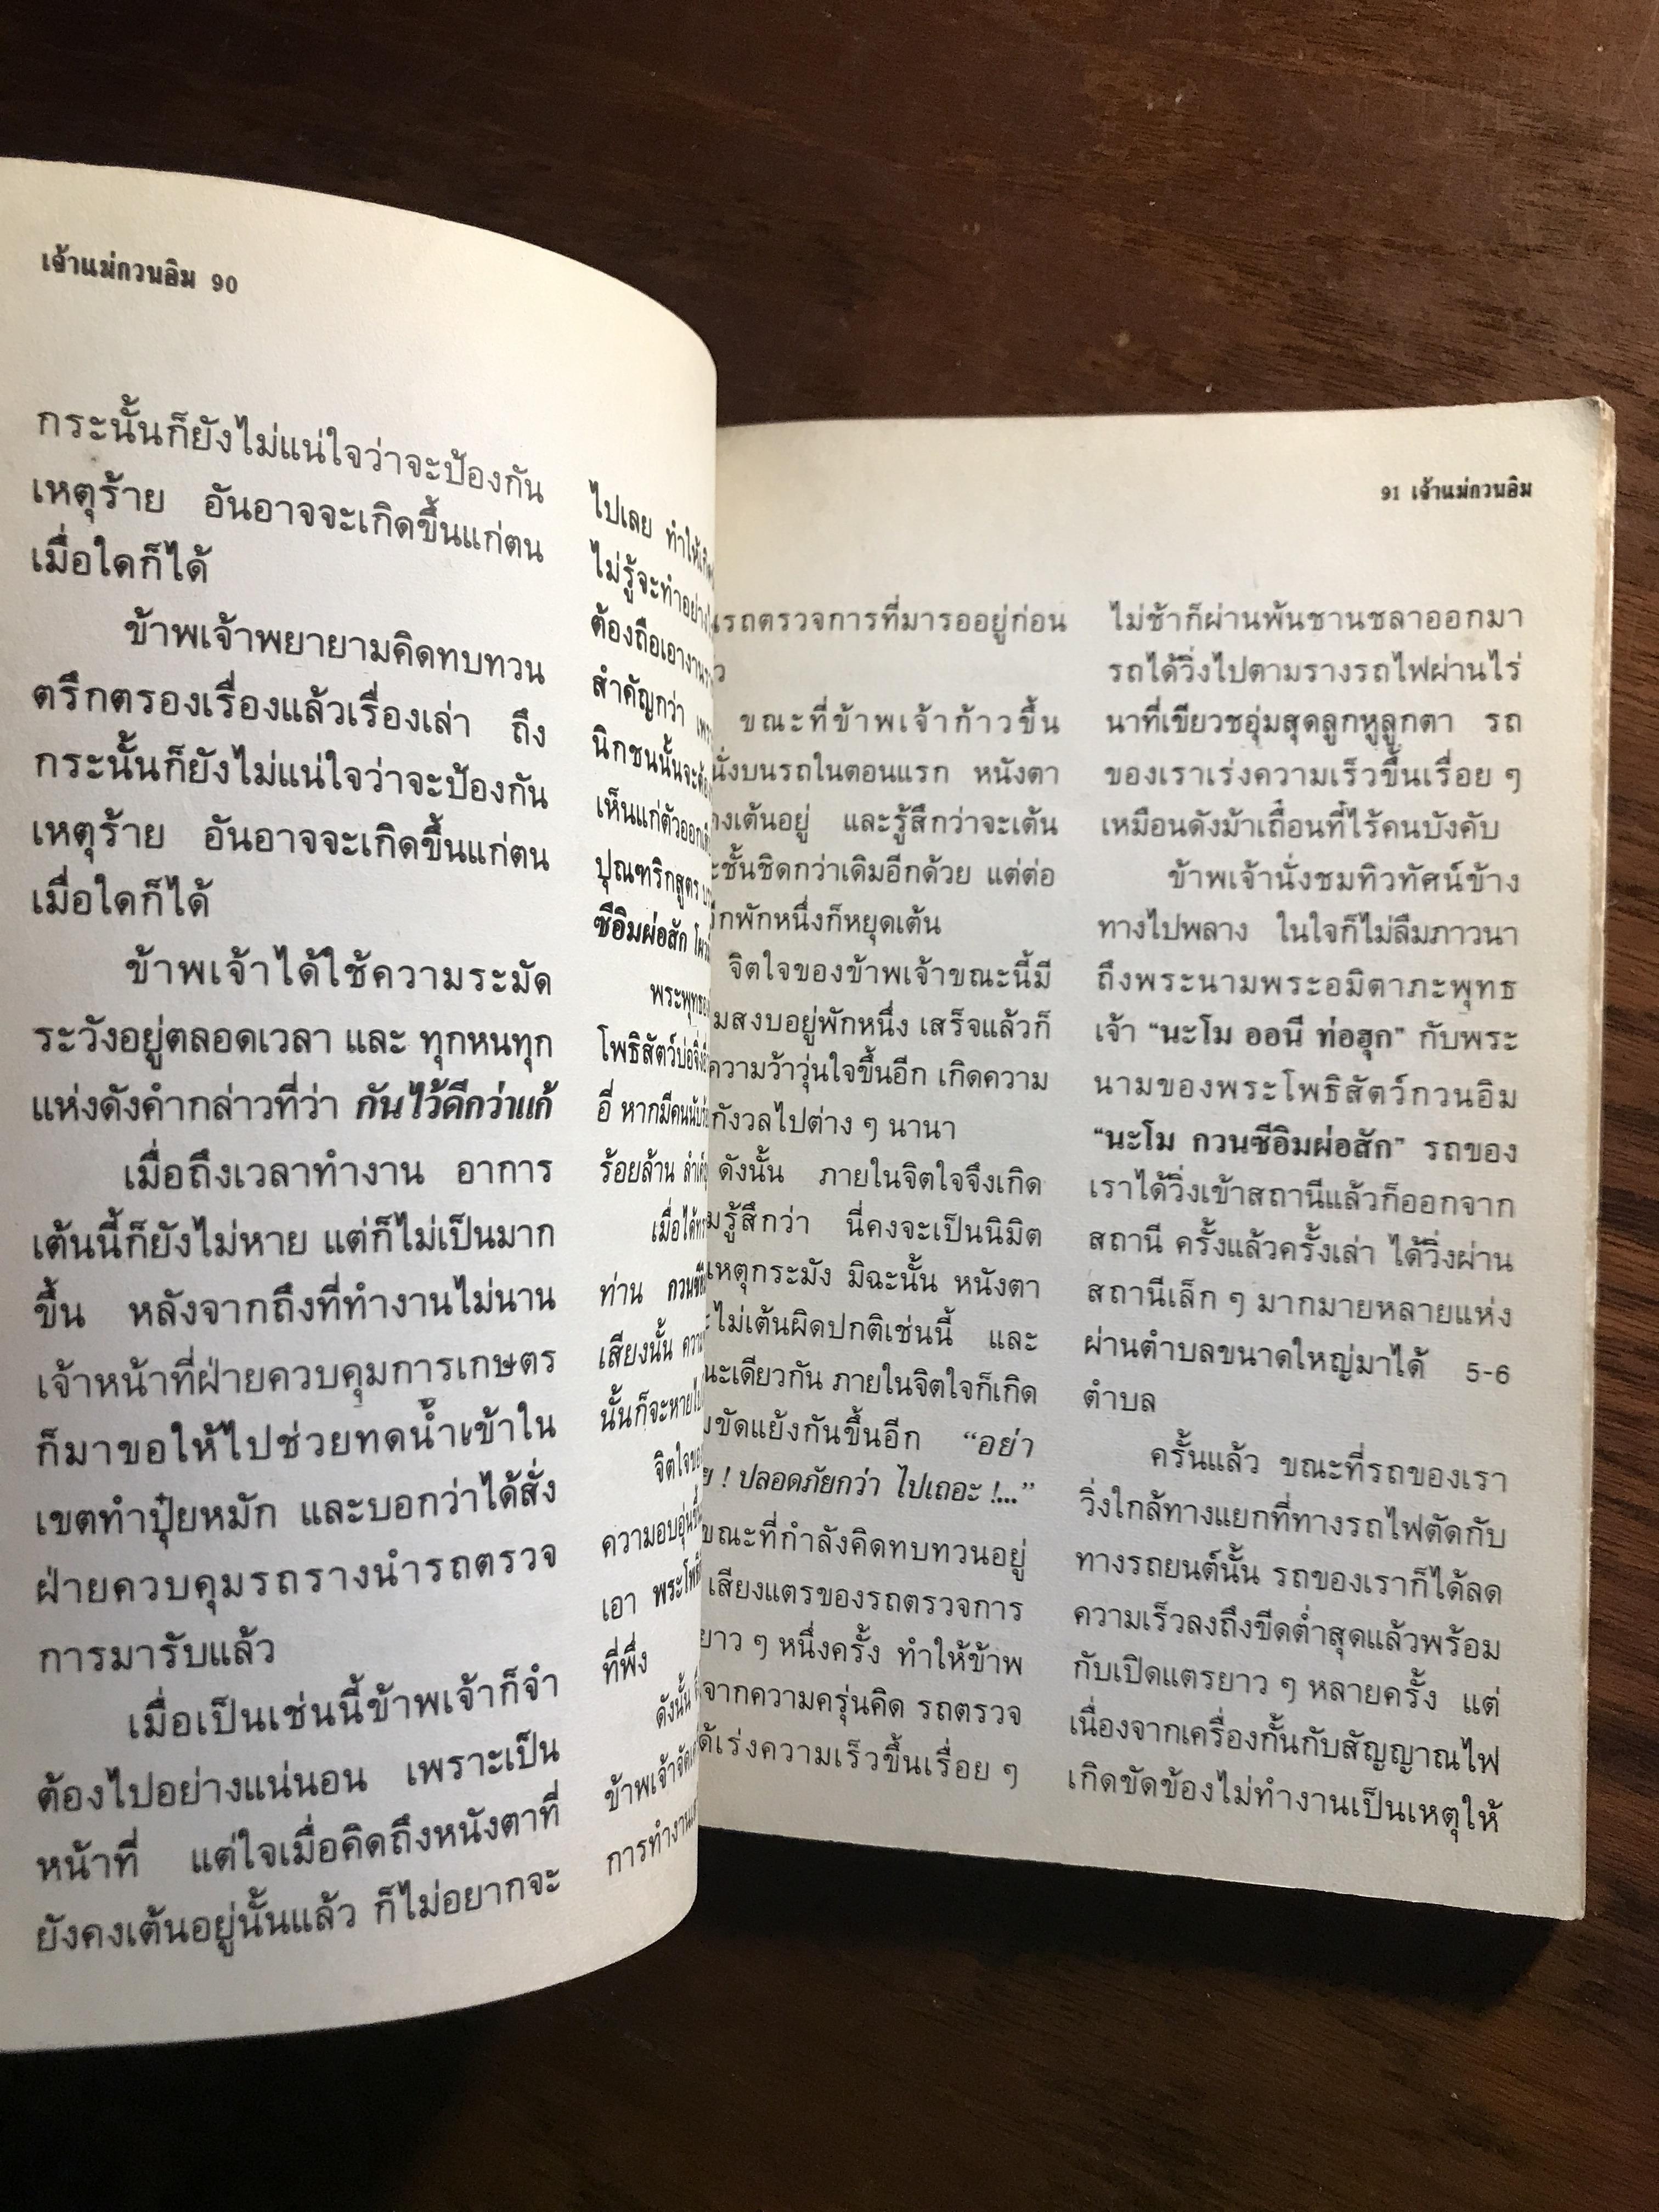 เจ้าแม่กวนอิม 90
กระนั้นก็ยังไม่แน่ใจว่าจะป้องกัน
เหตุร้าย อันอาจจะเกิดขึ้นแก่ตน
เมื่อใดก็ได้
ข้าพเจ้าพยายามคิดทบทวน
ตรึกตรองเรื่องแล้วเรื่องเล่า ถึง
กระนั้นก็ยังไม่แน่ใจว่าจะป้องกัน
เหตุร้าย อันอาจจะเกิดขึ้นแก่ตน
เมื่อใดก็ได้
ข้าพเจ้าได้ใช้ความระมัด
ระวังอยู่ตลอดเวลา และ ทุกหนทุก
แห่งดังคำกล่าวที่ว่า กันไว้ดีกว่าแก้
เมื่อถึงเวลาทำงาน อาการ
เต้นนี้ก็ยังไม่หาย แต่ก็ไม่เป็นมาก
ขึ้น หลังจากถึงที่ทำงานไม่นาน
เจ้าหน้าที่ฝ่ายควบคุมการเกษตร
ก็มาขอให้ไปช่วยทดน้ำเข้าใน
เขตทำปุ๋ยหมัก และบอกว่าได้สั่ง
ฝ่ายควบคุมรถรางนำรถตรวจ
การมารับแล้ว
เมื่อเป็นเช่นนี้ข้าพเจ้าก็จำ
ต้องไปอย่างแน่นอน เพราะเป็น
หน้าที่ แต่ใจเมื่อคิดถึงหนังตาที่
ยังคงเต้นอยู่นั้นแล้ว ก็ไม่อยากจะ
ไปเลย
ไม่รู้จะทำ
ต้องถือเอางาน
สำคัญกว่า
นิกชนนั้นจะต้อง
เห็นแก่ตัว
ปุณฑริกสูตร
ซีอิมผ่อสัก
โพธิสัตว์
อี่ หากมีคน
ร้อยล้าน
เมื่อได้
ท่าน
เสียงนั้น
นั้นก็จะหาย
จิตใจ
ความอบอุ่น
เอา
ที่พึ่ง
ดังนั้น
ข้าพเจ้า
การทำงาน
91 เจ้าแม่กวนอิม
รถตรวจการที่มารออยู่ก่อน
ขณะที่ข้าพเจ้าก้าวขึ้น
นั่งบนรถในตอนแรก หนังตา
เต้นอยู่ และรู้สึกว่าจะเต้น
ชั้นชิดกว่าเดิมอีกด้วย แต่ต่อ
อีกพักหนึ่งก็หยุดเต้น
จิตใจของข้าพเจ้าขณะนี้มี
สงบอยู่พักหนึ่ง เสร็จแล้วก็
ความว้าวุ่นใจขึ้นอีก เกิดความ
กังวลไปต่าง ๆ นานา
ดังนั้น ภายในจิตใจจึงเกิด
รู้สึกว่า นี่คงจะเป็นนิมิต
เหตุกระมัง มิฉะนั้น หนังตา
ไม่เต้นผิดปกติเช่นนี้ และ
เดียวกัน ภายในจิตใจก็เกิด
ขัดแย้งกันขึ้นอีก “อย่า
! ปลอดภัยกว่า ไปเถอะ !...”
ขณะที่กำลังคิดทบทวนอยู่
เสียงแตรของรถตรวจการ
ยาว ๆ หนึ่งครั้ง ทำให้ข้าพ
จากความครุ่นคิด รถตรวจ
เร่งความเร็วขึ้นเรื่อย ๆ
ไม่ช้าก็ผ่านพ้นชานชลาออกมา
รถได้วิ่งไปตามรางรถไฟผ่านไร่
นาที่เขียวชอุ่มสุดลูกหูลูกตา รถ
ของเราเร่งความเร็วขึ้นเรื่อย ๆ
เหมือนดังม้าเถื่อนที่ไร้คนบังคับ
ข้าพเจ้านั่งชมทิวทัศน์ข้าง
ทางไปพลาง ในใจก็ไม่ลืมภาวนา
ถึงพระนามพระอมิตาภะพุทธ
เจ้า “นะโม ออนี ท่อฮุก” กับพระ
นามของพระโพธิสัตว์กวนอิม
“นะโม กวนซีอิมผ่อสัก” รถของ
เราได้วิ่งเข้าสถานีแล้วก็ออกจาก
สถานี ครั้งแล้วครั้งเล่า ได้วิ่งผ่าน
สถานีเล็ก ๆ มากมายหลายแห่ง
ผ่านตำบลขนาดใหญ่มาได้ 5-6
ตำบล
ครั้นแล้ว ขณะที่รถของเรา
วิ่งใกล้ทางแยกที่ทางรถไฟตัดกับ
ทางรถยนต์นั้น รถของเราก็ได้ลด
ความเร็วลงถึงขีดต่ำสุดแล้วพร้อม
กับเปิดแตรยาว ๆ หลายครั้ง แต่
เนื่องจากเครื่องกั้นกับสัญญาณไฟ
เกิดขัดข้องไม่ทำงานเป็นเหตุให้